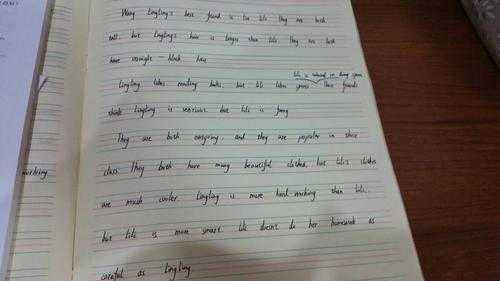 Wang Lingling's best friend is Liu Lili They are both
tall. but Lingling's hair is longer than Lili They are both
have straight - black hair
Lili is interested in doing sports
Lingling likes reading books, but Lili likes sports Their friends
think Lingling is serious but Lili is funny
They are both outgoing and they are popular in their
class They both have many beautiful clothes, but Lili's clothes
are much cooler. Lingling is more hard-working than Lili.
but Lili is more smart. Lili doesn't do her homework as
careful as Lingling
working